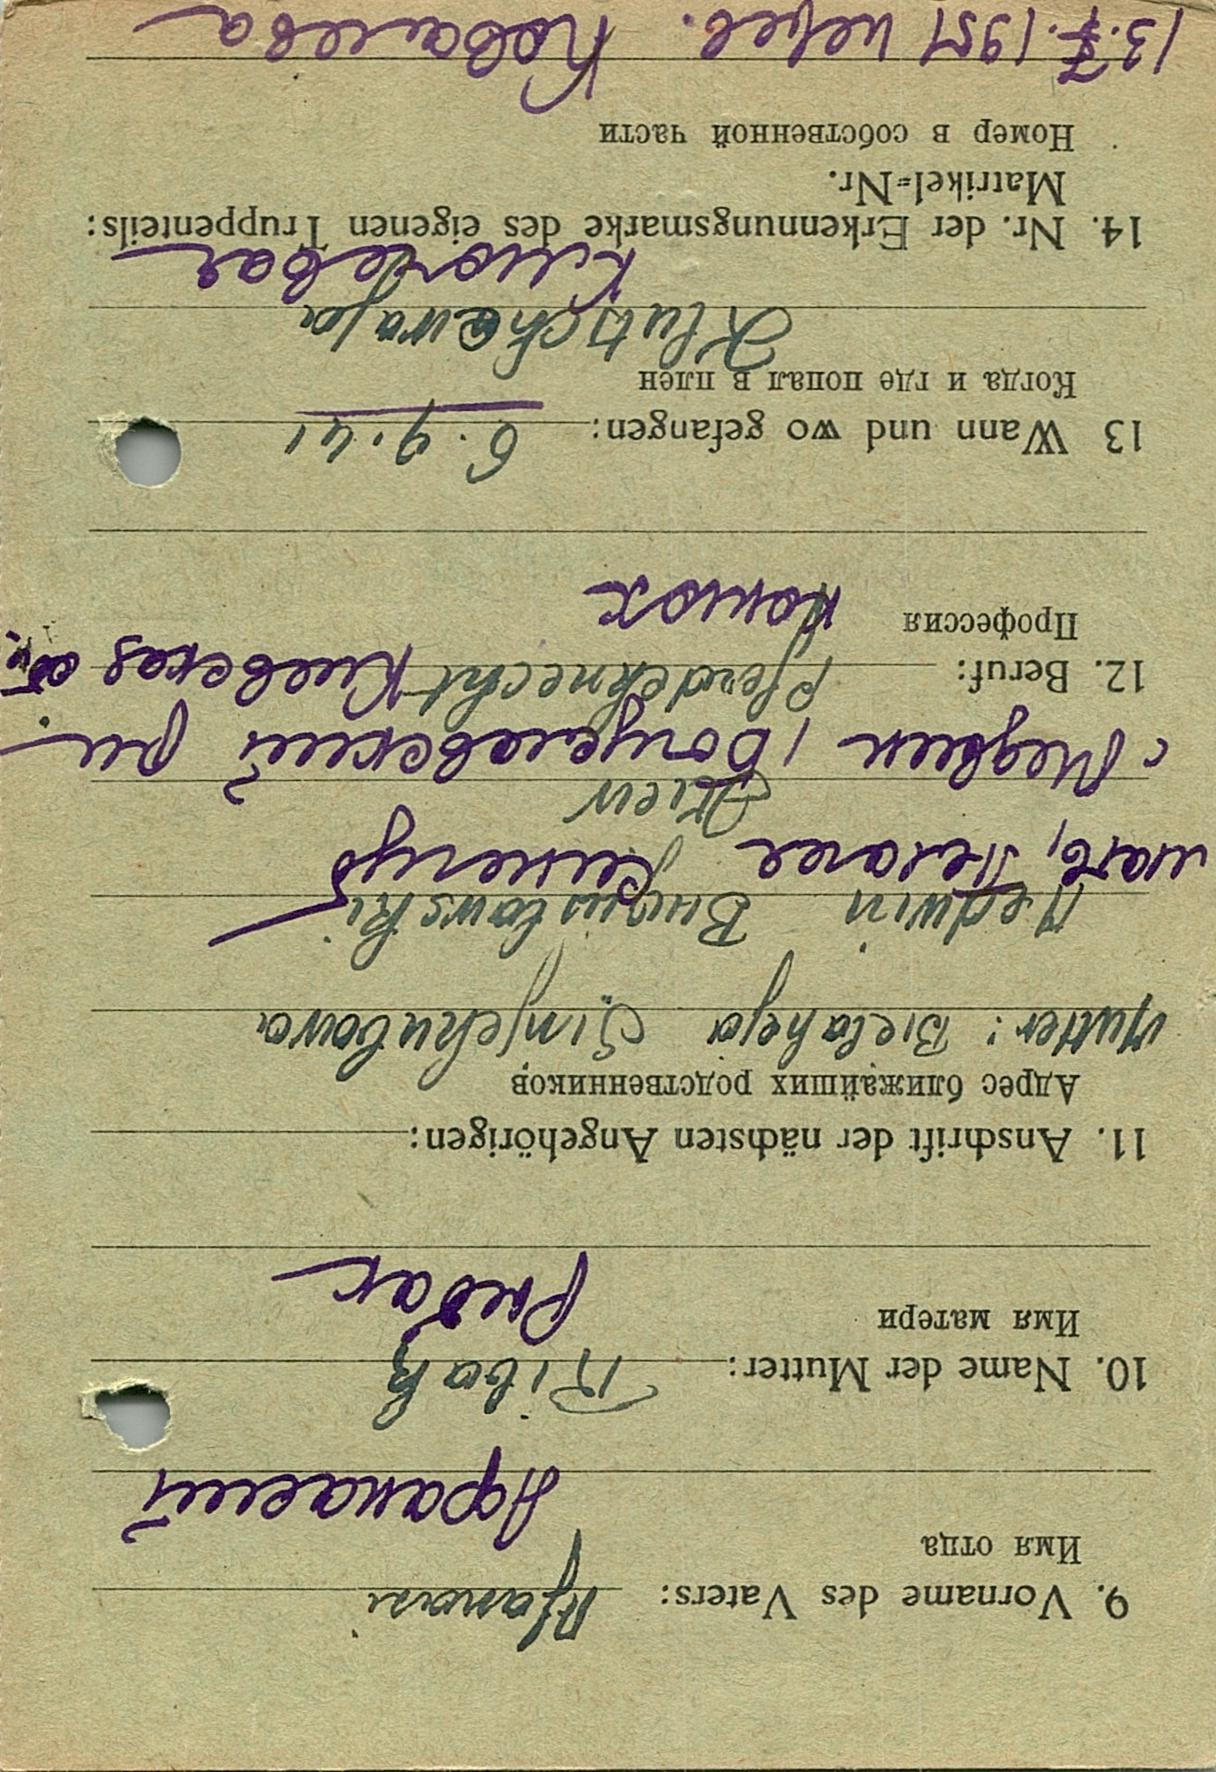 9. Vorname des Vaters: Afanasi
Имя отца
Афанасий
10. Name der Mutter: Ribak
Имя матери
Рибак
11. Anschrift der nächsten Angehörigen:
Адрес ближайших родственников
Mutter: Bielaheja
Medwin Buguslawski
мать,
Kiew
с Медвин, Богуславский рн.
12. Beruf: Pferdeknecht Киевская об.
Профессия
конюх
13 Wann und wo gefangen: 6.9.41
Когда и где попал в плен
Klutschewaja
Ключевая
14. Nr. der Erkennungsmarke des eigenen Truppenteils:
Matrikel=Nr.
Номер в собственной части
13.7.1951 перев. Ковалева